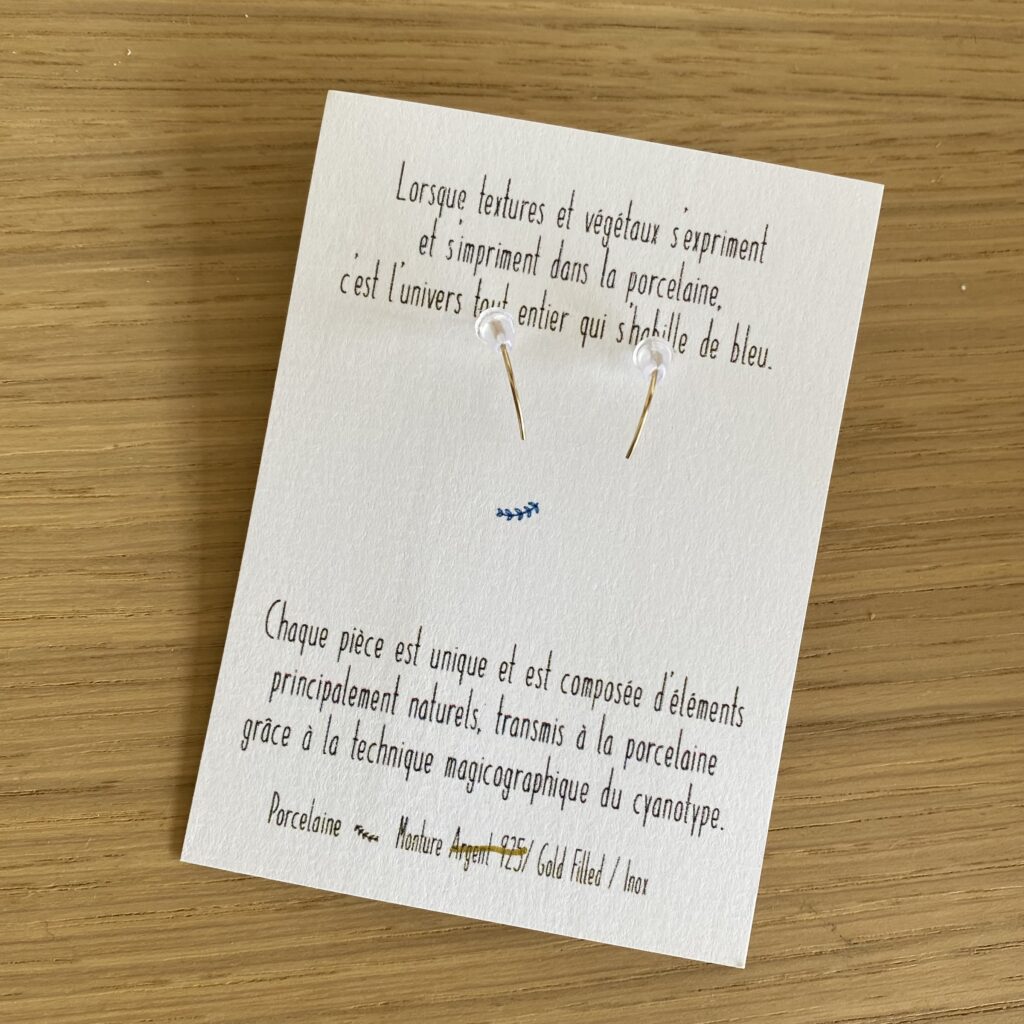 Lorsque textures et végétaux s'expriment
et s'impriment dans la porcelaine,
c'est l'univers tout entier qui s'habille de bleu.
Chaque pièce est unique et est composée d'éléments
principalement naturels, transmis à la porcelaine
grâce à la technique magicographique du cyanotype.
Porcelaine Monture Argent 925/ Gold Filled / Inox